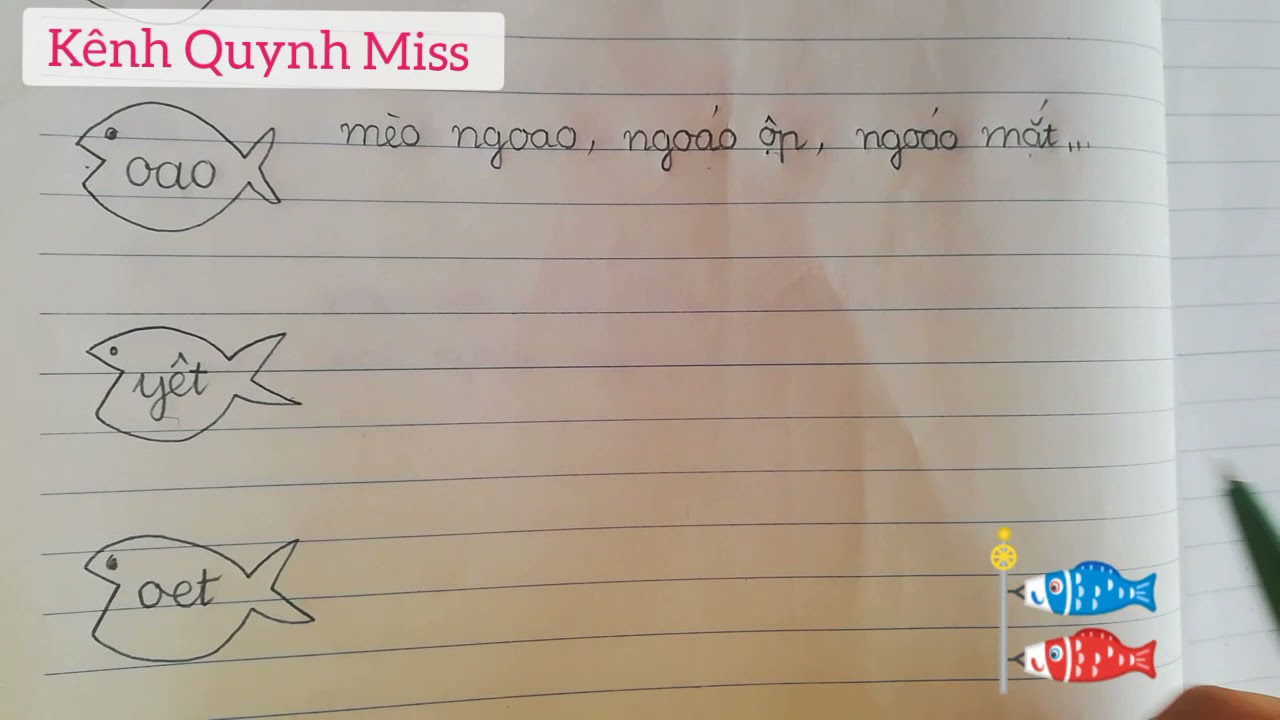 Kênh Quynh Miss
oao mèo ngoao, ngoáo ộp, ngoáo mắt...
yêt
oet